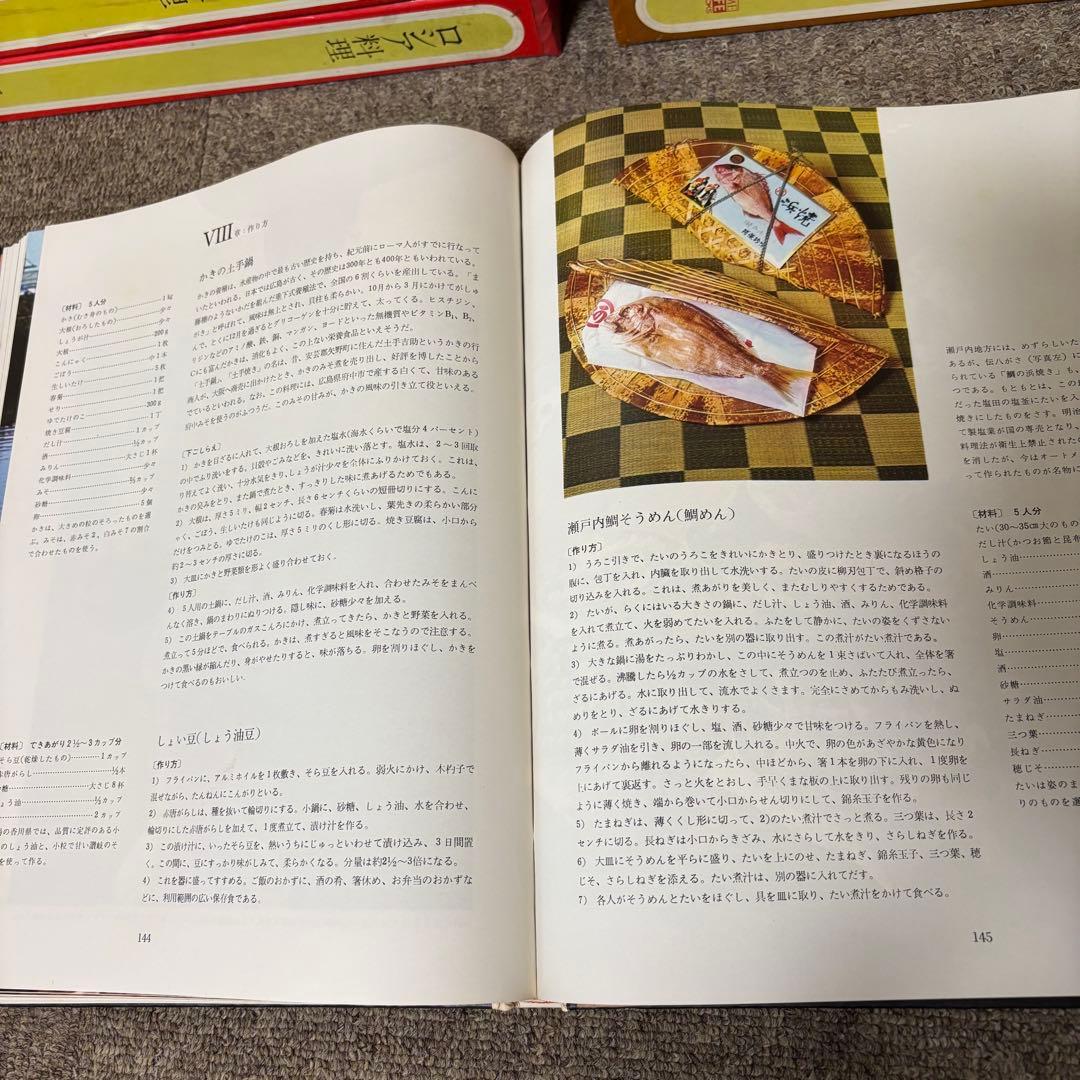 ロシア料理
VIII 章:作り方
かきの土手鍋
かきの養殖は、水産物の中で最も古い歴史を持ち、紀元前にローマ人がすでに行なって
いたといわれる。日本では広島が古く、その歴史は300年とも400年ともいわれている。
藤棚のようないかだを組んだ垂下式養殖法で、全国の6割くらいを産出している。「ま
がき」と呼ばれて、風味は無上とされ、貝柱も柔らかい。10月から3月にかけてがしゅ
んで、とくに12月を過ぎるとグリコーゲンを十分に貯えて、太ってくる。ヒスチジン、
リジンなどのアミノ酸、鉄、銅、マンガン、ヨードといった無機質やビタミンB₁、B₂、
Cにも富んだかきは、消化もよく、この上ない栄養食品といえそうだ。
「土手鍋」、「土手焼き」の名は、昔、安芸郡矢野町に住んだ土手吉助というかきの行
商人が、大阪へ商売に出かけたとき、かきのみそ煮を売り出し、好評を博したことから
でているといわれる。なお、この料理には、広島県府中市で産する白くて、甘味のある
府中みそを使うのがふつうだ。このみその甘みが、かきの風味の引き立て役といえる。
〔材料〕 5人分
かき(むき身のもの)……1kg
大根(おろしたもの)……少々
しょうが汁……少々
大根……200g
こんにゃく……1枚
ごぼう……中1本
生しいたけ……5枚
春菊……1把
せり……1把
ゆでたけのこ……300g
焼き豆腐……1丁
だし汁……1カップ
酒……½カップ
みりん……大さじ1杯
化学調味料……少々
みそ……⅔カップ
砂糖……少々
卵……5個
かきは、大きめの粒のそろったものを選
ぶ。みそは、赤みそ2、白みそ1の割合
で合わせたものを使う。
〔下ごしらえ〕
1) かきを目ざるに入れて、大根おろしを加えた塩水(海水くらいで塩分4パーセント)
の中でふり洗いをする。貝殻やごみなどを、きれいに洗い落とす。塩水は、2〜3回取
り替えてよく洗い、十分水気をきり、しょうが汁少々を全体にふりかけておく。これは、
かきの臭みをとり、また鍋で煮たとき、すっきりした味に煮あげるためでもある。
2) 大根は、厚さ5ミリ、幅2センチ、長さ6センチくらいの短冊切りにする。こんに
ゃく、ごぼう、生しいたけも同じように切る。春菊は水洗いし、葉先きの柔らかい部分
だけをつみとる。ゆでたけのこは、厚さ5ミリのくし形に切る。焼き豆腐は、小口から
約2〜3センチの厚さに切る。
3) 大皿にかきと野菜類を形よく盛り合わせておく。
〔作り方〕
4) 5人用の土鍋に、だし汁、酒、みりん、化学調味料を入れ、合わせたみそをまんべ
んなく溶き、鍋のまわりにぬりつける。隠し味に、砂糖少々を加える。
5) この土鍋をテーブルのガスこんろにかけ、煮立ってきたら、かきと野菜を入れる。
煮立って5分ほどで、食べられる。かきは、煮すぎると風味をそこなうので注意する。
かきの黒い縁が縮んだり、身がやせたりすると、味が落ちる。卵を割りほぐし、かきを
つけて食べるのもおいしい。
しょい豆(しょう油豆)
〔材料〕 できあがり2½〜3カップ分
そら豆(乾燥したもの)……1カップ
赤唐がらし……½本
砂糖……大さじ8杯
しょう油……½カップ
……2カップ
の香川県では、品質に定評のある小
のしょう油と、小粒で甘い讃岐のそ
を使って作る。
〔作り方〕
1) フライパンに、アルミホイルを1枚敷き、そら豆を入れる。弱火にかけ、木杓子で
混ぜながら、たんねんにこんがりといる。
2) 赤唐がらしは、種を抜いて輪切りにする。小鍋に、砂糖、しょう油、水を合わせ、
輪切りにした赤唐がらしを加えて、1度煮立て、漬け汁を作る。
3) この漬け汁に、いったそら豆を、熱いうちにじゅっといわせて漬け込み、3日間置
く。この間に、豆にすっかり味がしみて、柔らかくなる。分量は約2½〜3倍になる。
4) これを器に盛ってすすめる。ご飯のおかずに、酒の肴、箸休め、お弁当のおかずな
どに、利用範囲の広い保存食である。
144
浜焼
瀬戸内地方には、めずらしいた
あるが、伝八がさ(写真左)に
られている「鯛の浜焼き」も、
つである。もともとは、この
だった塩田の塩釜にたいを入
焼きにしたものをさす。明治
て製塩業が国の専売となり、
料理法が衛生上禁止された
を消したが、今はオートメ
って作られたものが名物に
瀬戸内鯛そうめん(鯛めん)
〔作り方〕
1) うろこ引きで、たいのうろこをきれいにかきとり、盛りつけたとき裏になるほうの
腹に、包丁を入れ、内臓を取り出して水洗いする。たいの皮に柳刃包丁で、斜め格子の
切り込みを入れる。これは、煮あがりを美しく、またむしりやすくするためである。
2) たいが、らくにはいる大きさの鍋に、だし汁、しょう油、酒、みりん、化学調味料
を入れて煮立て、火を弱めてたいを入れる。ふたをして静かに、たいの姿をくずさない
ように煮る。煮あがったら、たいを別の器に取り出す。この煮汁がたい煮汁である。
3) 大きな鍋に湯をたっぷりわかし、この中にそうめんを1束さばいて入れ、全体を箸
で混ぜる。沸騰したら½カップの水をさして、煮立つのを止め、ふたたび煮立ったら、
ざるにあげる。水に取り出して、流水でよくさます。完全にさめてからもみ洗いし、ぬ
めりをとり、ざるにあげて水きりする。
4) ボールに卵を割りほぐし、塩、酒、砂糖少々で甘味をつける。フライパンを熱し、
薄くサラダ油を引き、卵の一部を流し入れる。中火で、卵の色があざやかな黄色になり
フライパンから離れるようになったら、中ほどから、箸1本を卵の下に入れ、1度卵を
上にあげて裏返す。さっと火をとおし、手早くまな板の上に取り出す。残りの卵も同じ
ように薄く焼き、端から巻いて小口からせん切りにして、錦糸玉子を作る。
5) たまねぎは、薄くくし形に切って、2)のたい煮汁でさっと煮る。三つ葉は、長さ2
センチに切る。長ねぎは小口からきざみ、水にさらして水をきり、さらしねぎを作る。
6) 大皿にそうめんを平らに盛り、たいを上にのせ、たまねぎ、錦糸玉子、三つ葉、穂
じそ、さらしねぎを添える。たい煮汁は、別の器に入れてだす。
7) 各人がそうめんとたいをほぐし、具を皿に取り、たい煮汁をかけて食べる。
〔材料〕 5人分
たい(30〜35cm大のもの
だし汁(かつお節と昆布
しょう油……
酒……
みりん……
化学調味料……
そうめん……
卵……
塩……
酒……
砂糖……
サラダ油……
たまねぎ……
三つ葉……
長ねぎ……
穂じそ……
たいは姿のま
りのものを選
145